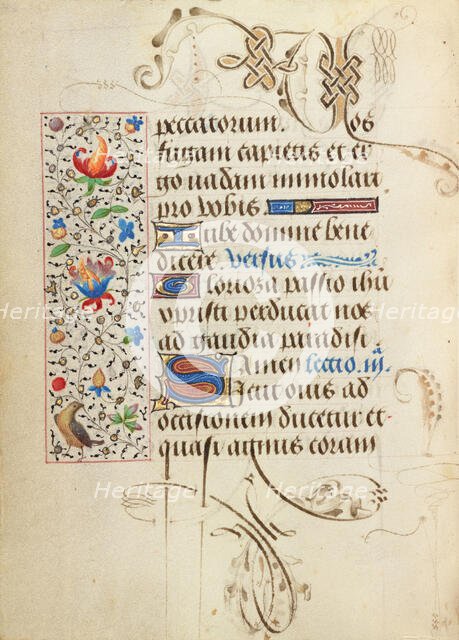 peccatorum. Vos
fugam capietis et er
go vadam immolari
pro vobis.
Iube domine bene
dicere. Versus
Glorioza passio ihu
xpristi perducat nos
ad gaudia paradisi
Amen lectio .iija.
Sicut ovis ad
occisionem ducetur et
quasi agnus coram
Heritage
Heritage
Heritage
Heritage